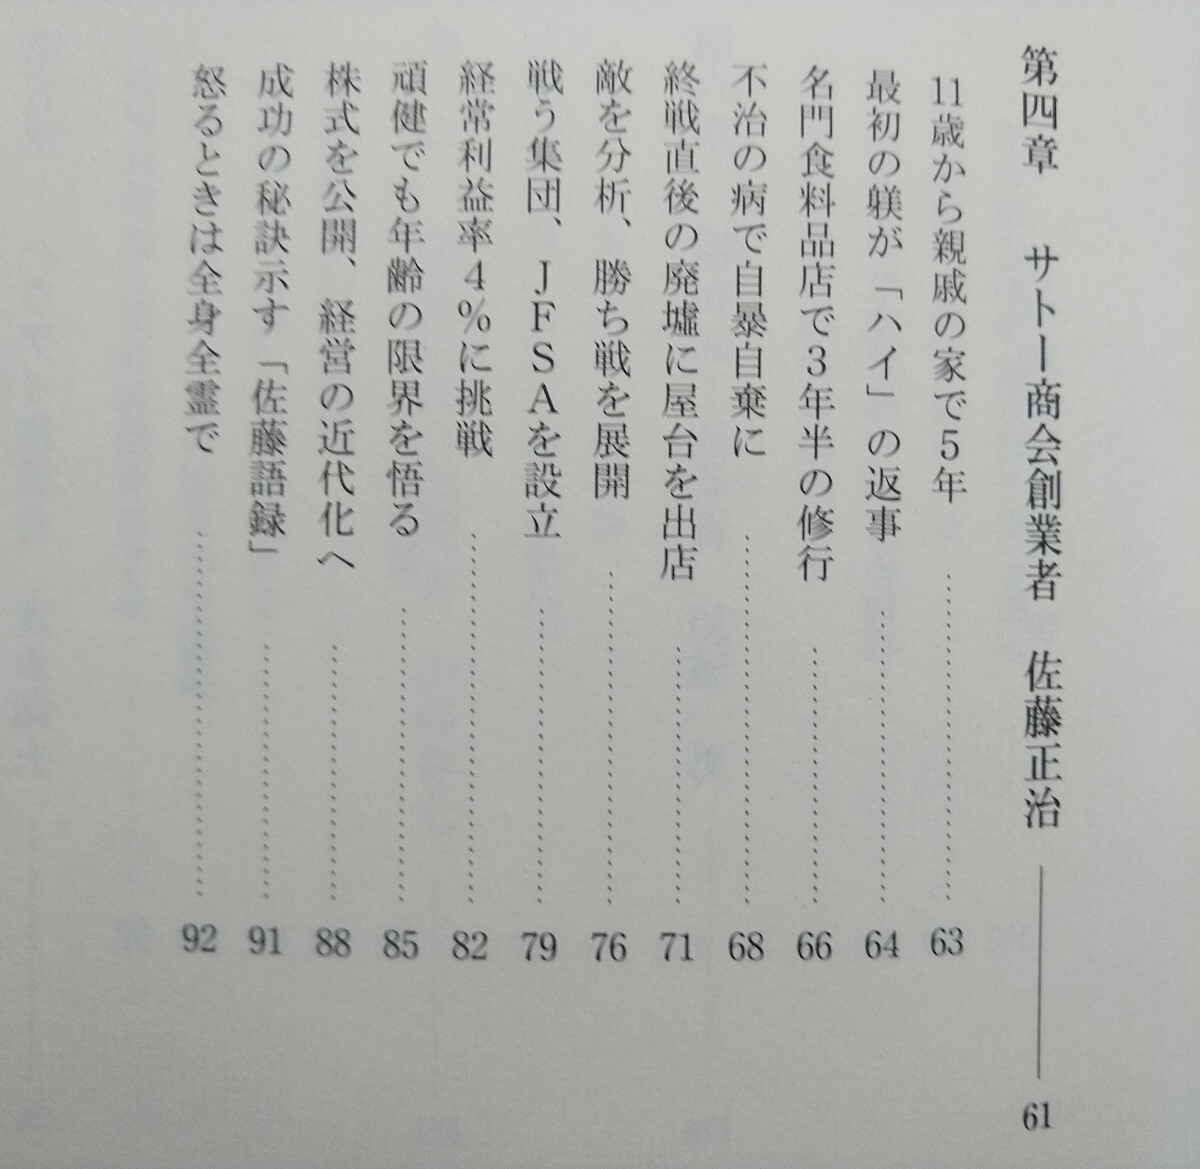 第四章　サトー商会創業者　佐藤正治 ――― 61
11歳から親戚の家で5年 ……… 63
最初の躾が「ハイ」の返事 ……… 64
名門食料品店で3年半の修行 ……… 66
不治の病で自暴自棄に ……… 68
終戦直後の廃墟に屋台を出店 ……… 71
敵を分析、勝ち戦を展開 ……… 76
戦う集団、JFSAを設立 ……… 79
経常利益率4％に挑戦 ……… 82
頑健でも年齢の限界を悟る ……… 85
株式を公開、経営の近代化へ ……… 88
成功の秘訣示す「佐藤語録」 ……… 91
怒るときは全身全霊で ……… 92